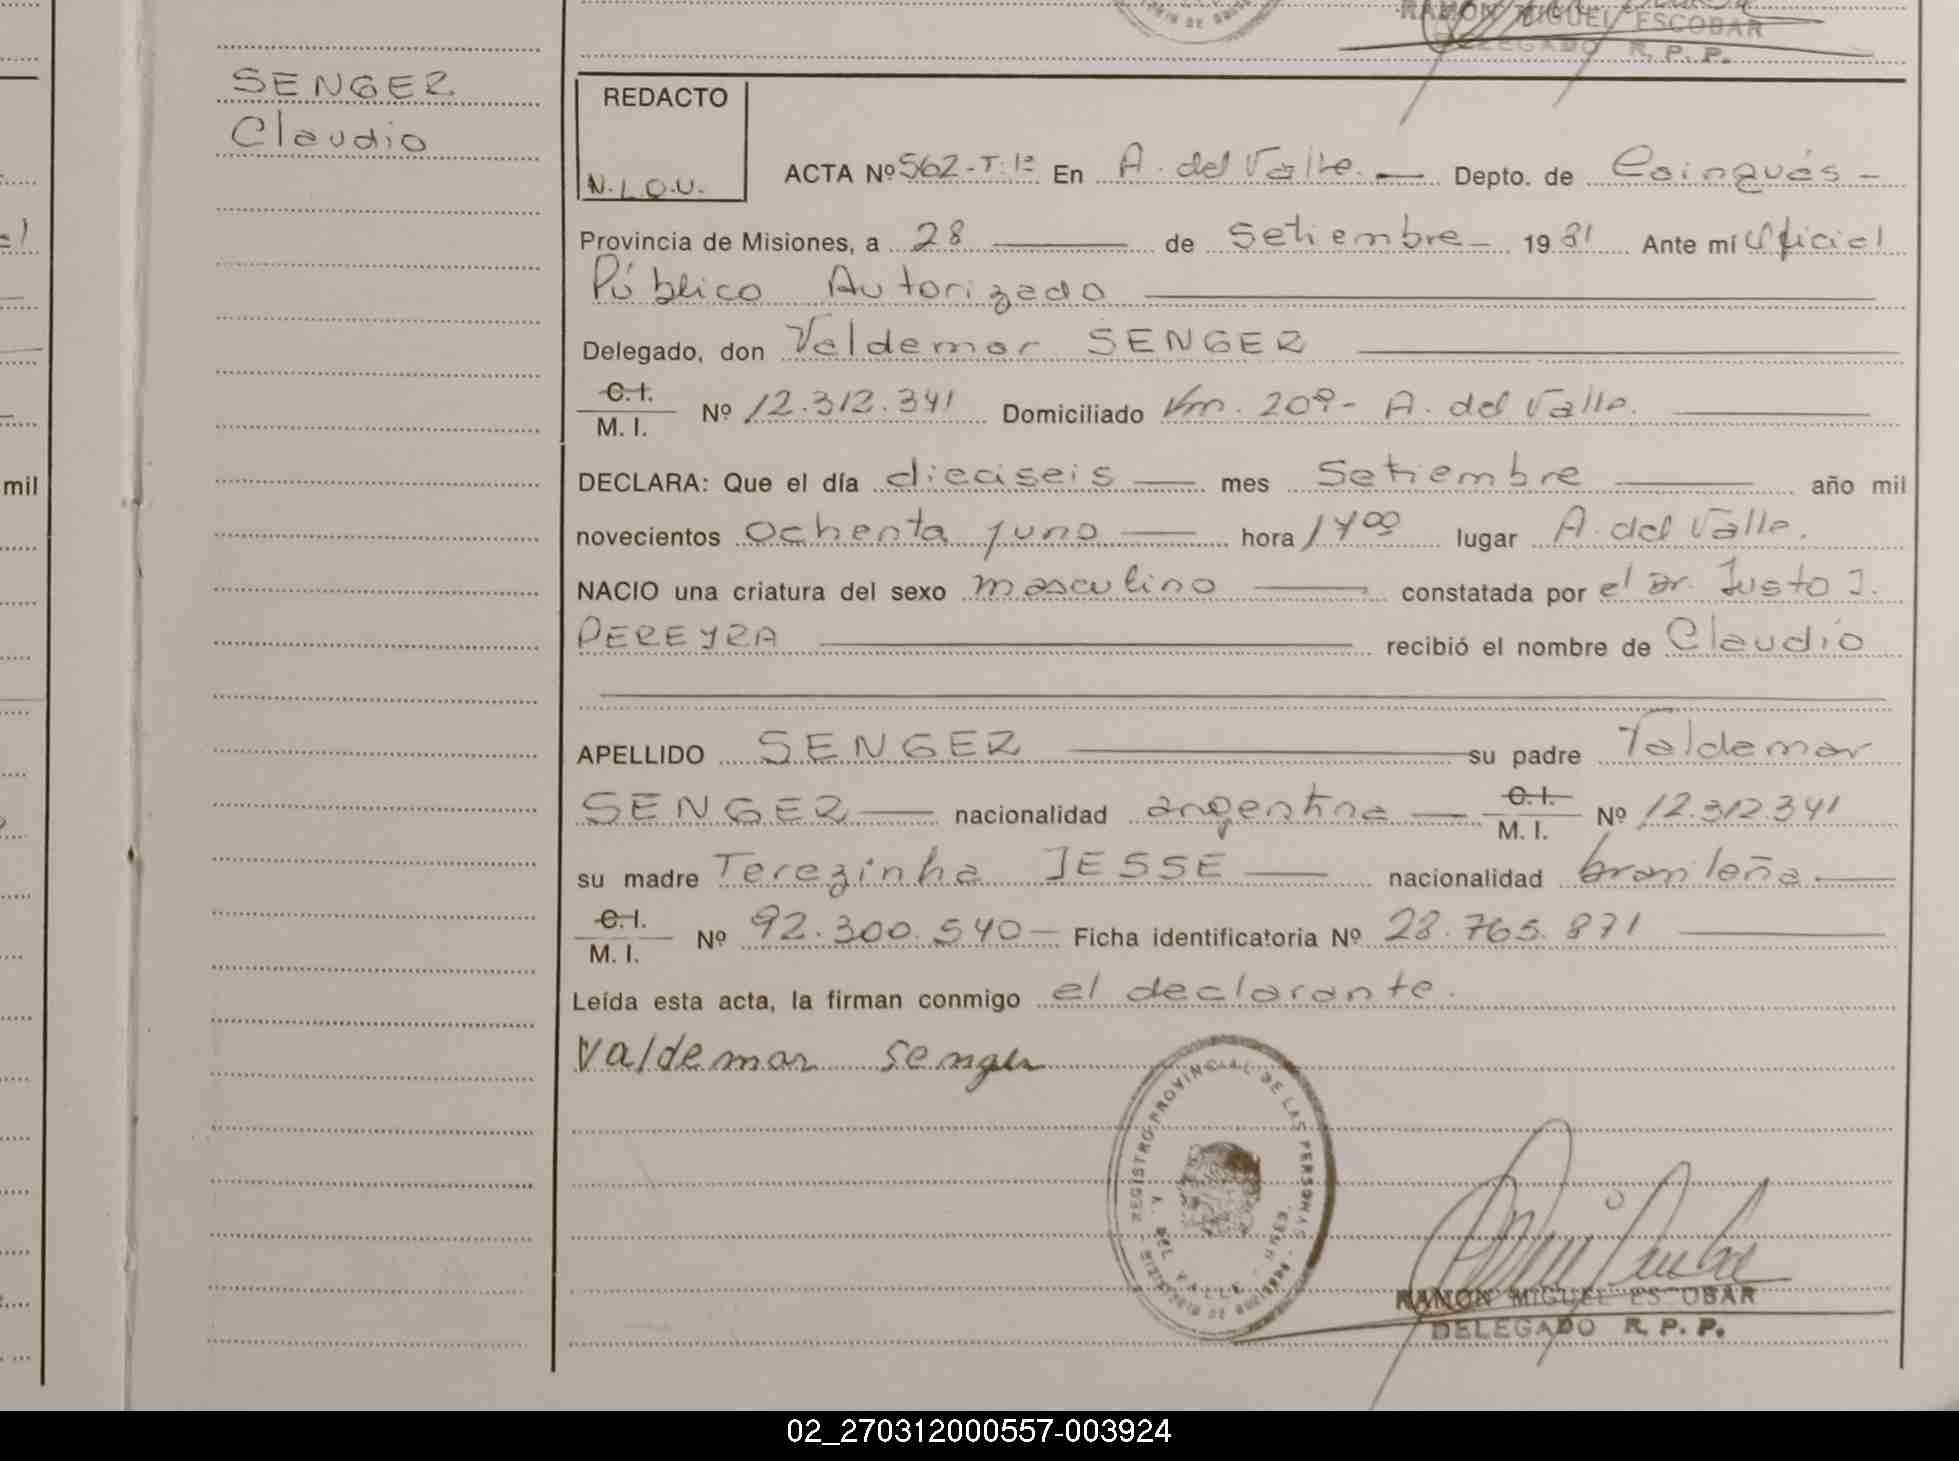 RAMON MIGUEL ESCOBAR
DELEGADO R. P. P.
SENGER
Claudio
REDACTO
N.L.O.U.
ACTA Nº 562-T:1º En A. del Valle. Depto. de Cainguás -
Provincia de Misiones, a 28 de Setiembre 19 81 Ante mí Oficial
Público Autorizado
Delegado, don Valdemar SENGER
C.I.
M. I.
Nº 12.312.341 Domiciliado Km. 209 - A. del Valle.
DECLARA: Que el día dieciseis mes Setiembre año mil
novecientos ochenta y uno hora 14 00 lugar A. del Valle.
NACIO una criatura del sexo masculino constatada por el Dr. Justo J.
PEREYRA recibió el nombre de Claudio
APELLIDO SENGER su padre Valdemar
SENGER nacionalidad argentina C.I. M. I. Nº 12.312.341
su madre Terezinha JESSE nacionalidad brasileña
C.I.
M. I.
Nº 92.300.540 - Ficha identificatoria Nº 28.765.871
Leída esta acta, la firman conmigo el declarante.
Valdemar Senger
REGISTRO PROVINCIAL DE LAS PERSONAS
A. DEL VALLE
RAMON MIGUEL ESCOBAR
DELEGADO R. P. P.
mil
02_270312000557-003924